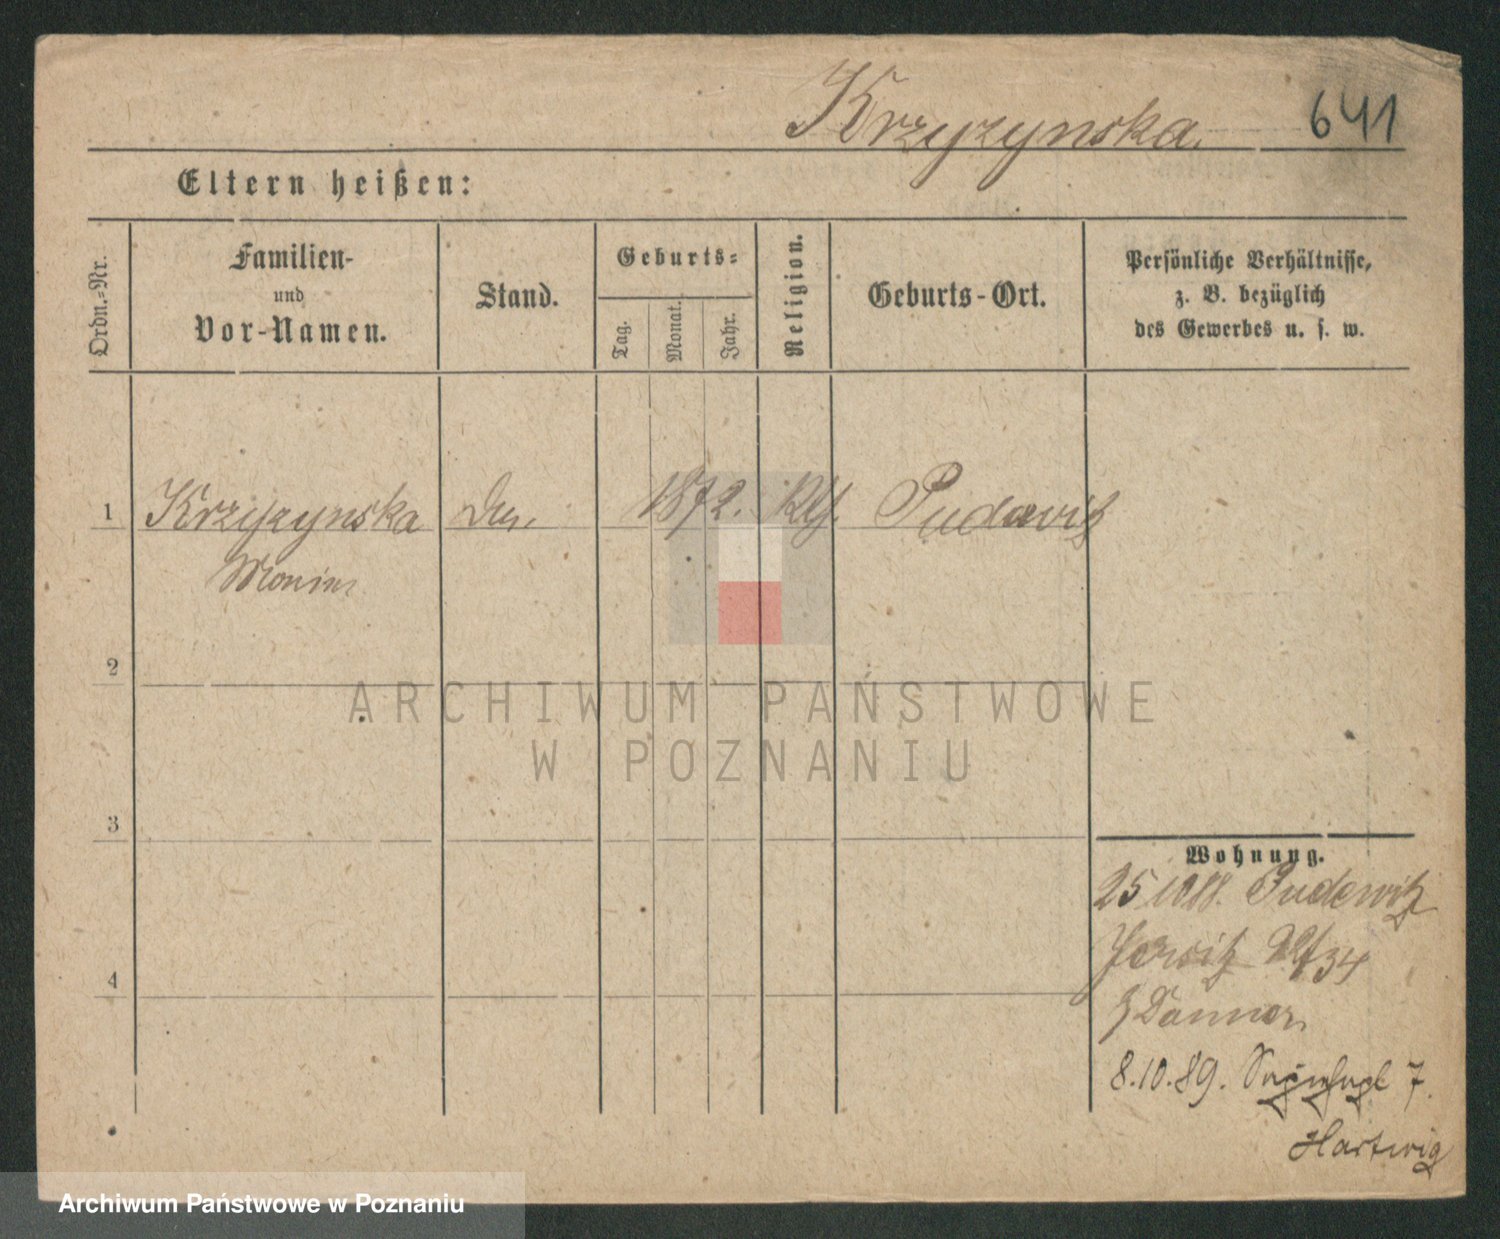 Krzyzynska. 641
Eltern heißen:
Ordn.-Nr.
Familien-
und
Vor-Namen.
Stand.
Geburts-
Tag.
Monat.
Jahr.
Religion.
Geburts-Ort.
Persönliche Verhältnisse,
z. B. bezüglich
des Gewerbes u. s. w.
1 Krzyzynska 1872. Pudewitz
2
3
4
Wohnung.
25 10 88. Pudewitz
Jersitz 34
8.10.89. 7.
Hartwig
ARCHIWUM PAŃSTWOWE
W POZNANIU
Archiwum Państwowe w Poznaniu